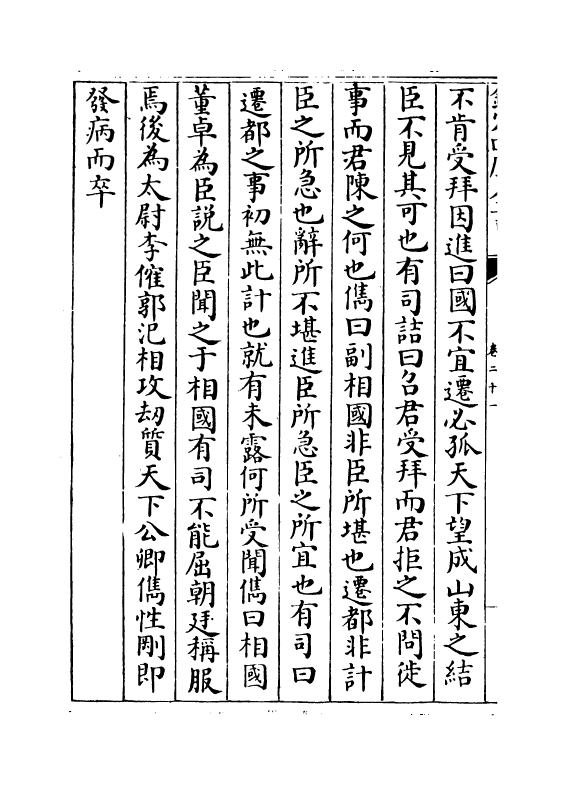 不肯受拜因進曰國不宜遷必孤天下望成山東之結
臣不見其可也有司詰曰召君受拜而君拒之不問徙
事而君陳之何也儁曰副相國非臣所堪也遷都非計
臣之所急也辭所不堪進臣所急臣之所宜也有司曰
遷都之事初無此計也就有未露何所受聞儁曰相國
董卓為臣説之臣聞之于相國有司不能屈朝廷稱服
焉後為太尉李傕郭汜相攻劫質天下公卿儁性剛即
發病而卒
卷二十一